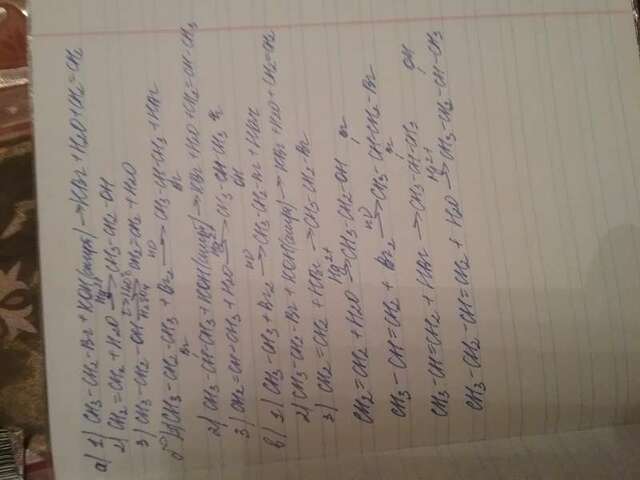 а) 1) CH₃-CH₂-Br + KOH(спирт) → KBr + H₂O + CH₂=CH₂
2) CH₂=CH₂ + H₂O →(Hg²⁺) CH₃-CH₂-OH
3) CH₃-CH₂-OH →(t>140°C, H₂SO₄) CH₂=CH₂ + H₂O
б) 1) CH₃-CH₂-CH₃ + Br₂ →(hν) CH₃-CH(Br)-CH₃ + HBr
2) CH₃-CH(Br)-CH₃ + KOH(спирт) → KBr + H₂O + CH₂=CH-CH₃
3) CH₂=CH-CH₃ + H₂O →(Hg²⁺) CH₃-CH(OH)-CH₃
в) 1) CH₃-CH₃ + Br₂ →(hν) CH₃-CH₂-Br + HBr
2) CH₃-CH₂-Br + KOH(спирт) → KBr + H₂O + CH₂=CH₂
3) CH₂=CH₂ + HBr → CH₃-CH₂-Br
CH₂=CH₂ + H₂O →(Hg²⁺) CH₃-CH₂-OH
CH₃-CH=CH₂ + Br₂ →(hν) CH₃-CH(Br)-CH₂-Br
CH₃-CH=CH₂ + HBr → CH₃-CH(Br)-CH₃
CH₃-CH₂-CH=CH₂ + H₂O →(Hg²⁺) CH₃-CH₂-CH(OH)-CH₃